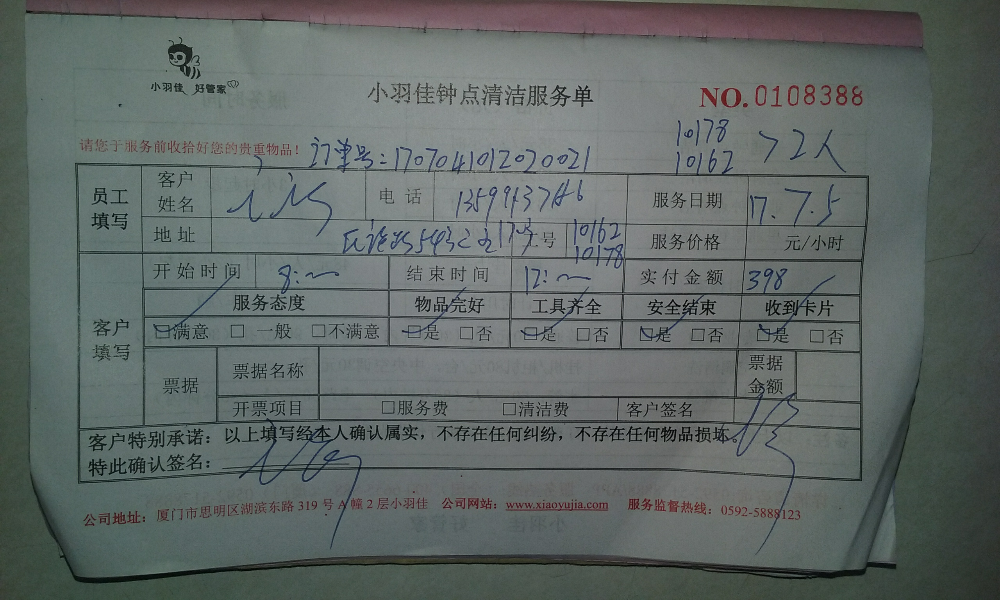 小羽佳 好管家
小羽佳钟点清洁服务单
NO.0108388
10178
10162 >2人
请您于服务前收拾好您的贵重物品！ 订单号:1707041012020021
员工填写 客户姓名 电话 服务日期 17.7.5
地址 工号 10162 10178 服务价格 元/小时
客户填写 开始时间 8:~ 结束时间 12:~ 实付金额 398
服务态度 物品完好 工具齐全 安全结束 收到卡片
☑满意 □一般 □不满意 ☑是 □否 ☑是 □否 ☑是 □否 ☑是 □否
票据 票据名称 票据金额
开票项目 □服务费 □清洁费 客户签名
客户特别承诺：以上填写经本人确认属实，不存在任何纠纷，不存在任何物品损坏。
特此确认签名：
公司地址：厦门市思明区湖滨东路 319 号 A 幢 2 层小羽佳 公司网站：www.xiaoyujia.com 服务监督热线：0592-5888123